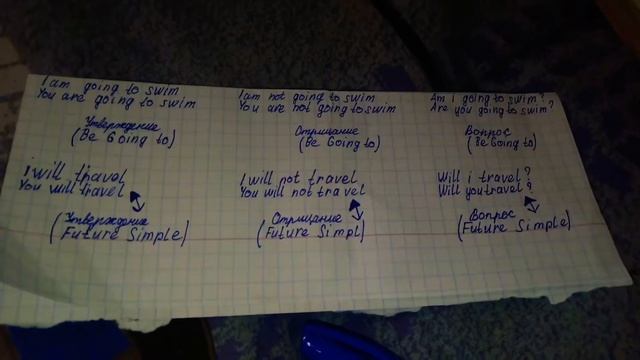 I am going to swim
You are going to swim
Утверждение
(Be Going to)
I will travel
You will travel
(Утверждение
Future Simple)
I am not going to swim
You are not going to swim
Отрицание
(Be Going to)
I will not travel
You will not travel
(Отрицание
Future Simpl)
Am i going to swim?
Are you going to swim?
Вопрос
(Be Going to)
Will i travel?
Will you travel?
(Вопрос
Future Simple)